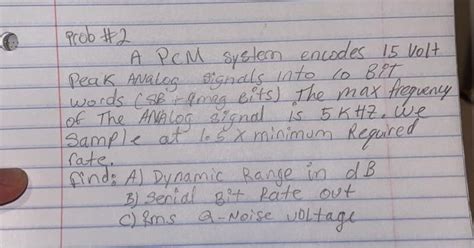 Prob #2
A PCM system encodes 15 Volt
Peak ANAlog signals into 10 BiT
words (SB + 9mag Bits) The max frequency
of The ANAlog signal is 5 KHZ. We
Sample at 1.5 X minimum Required
rate.
find: A) Dynamic Range in dB
B) Serial Bit Rate out
C) Rms Q-Noise voltage